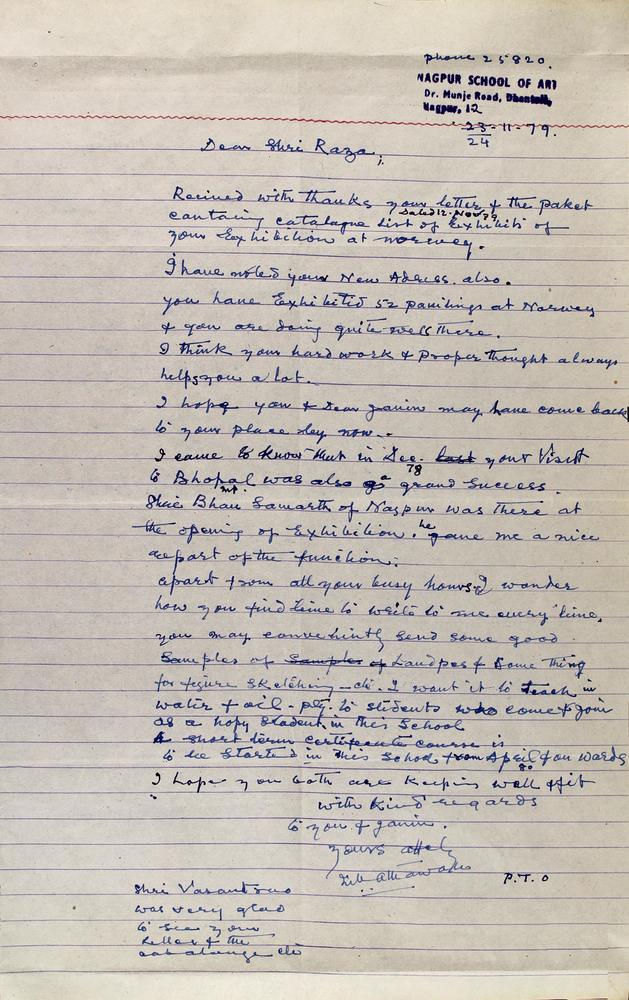 phone 25820.
NAGPUR SCHOOL OF ART
Dr. Munje Road, Dhantoli,
Nagpur, 12
23-11-79.
24
Dear Shri Raza,
Recived with thanks your letter & the paket
dated 12. Nov 79
cantaing catalague list of Exhibits of
your Exhibition at norweg.
I have noted your New Adress. also.
you have Exhibited 52 panitings at Norwey
& you are doing quite well there.
I think your hard work & proper thought always
helps you a lot.
I hope you & Dear janin may have come back
to your place bey now..
I came to know that in Dec. last your Visit
78
to Bhopal was also go a grand Success.
mp.
Shri Bhau Samarth of Nagpur was there at
the opening of Exhibition. he gave me a nice
repart of the function.
apart from all your busy hours I wonder
how you find time to write to me every time.
you may convenintly send some good
Samples of Samples of Landpes & Some thing
for figure Sketching - etc. I want it to teach in
water & oil - ptg. to students who come & join
as a hopy student in this School
A short term certificate course is
to be Started in this School from April & on wards
80
I hope you both are keeping well & fit
with kind regards
to you & janin.
yours affly
P.T.O
Shri Vasantrao
was very glad
to see your
letter & the
catalauge etc